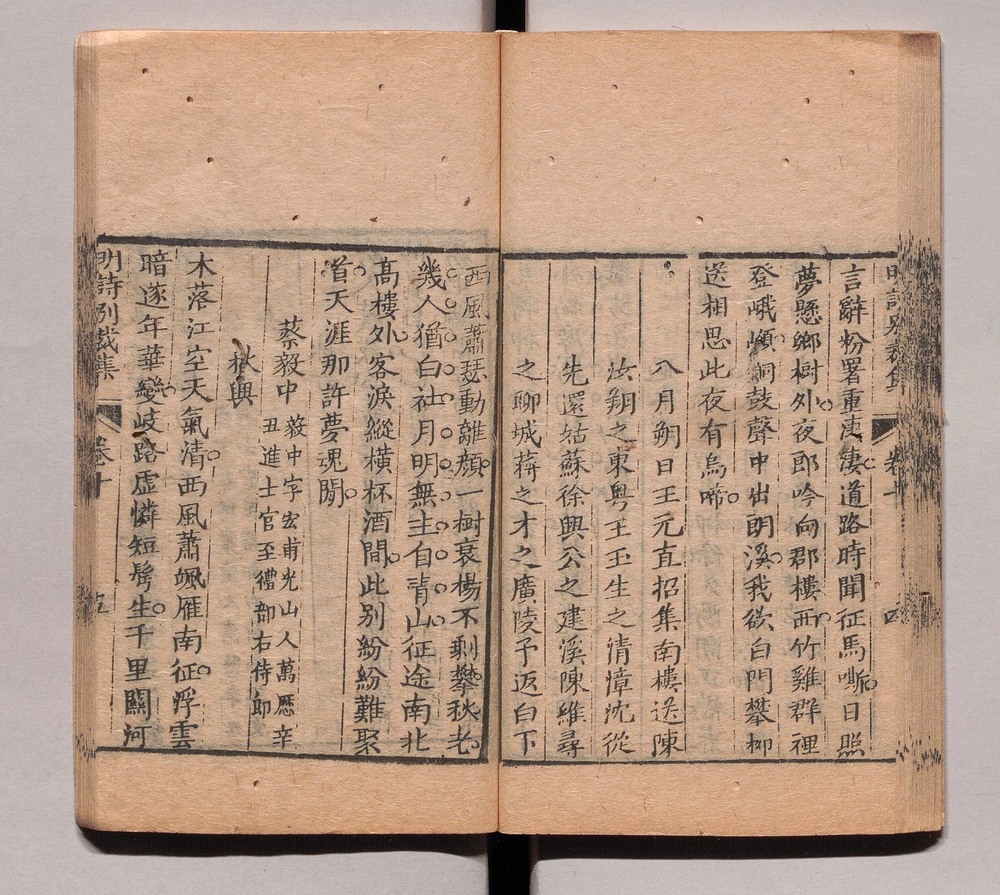 明詩別裁集 卷十 四
言辭粉署重悽悽道路時聞征馬嘶日照
夢懸鄉樹外夜郎吟向郡樓西竹雞群裡
登峨嵋銅鼓聲中出朗溪我欲白門攀柳
送相思此夜有烏啼
八月朔日王元直招集南樓送陳
汝翔之東粵王玉生之清漳沈從
先還姑蘇徐興公之建溪陳維尋
之聊城蔣之才之廣陵予返白下
西風蕭瑟動離顏一樹衰楊不剩攀秋老
幾人猶白社月明無主自青山征途南北
高樓外客淚縱橫杯酒間此別紛紛難聚
首天涯那許夢魂閒
蔡毅中 毅中字宏甫光山人萬歷辛
丑進士官至禮部右侍郎
秋興
木落江空天氣清西風蕭颯雁南征浮雲
暗逐年華變岐路虛憐短髩生千里關河
明詩別裁集 卷十 五